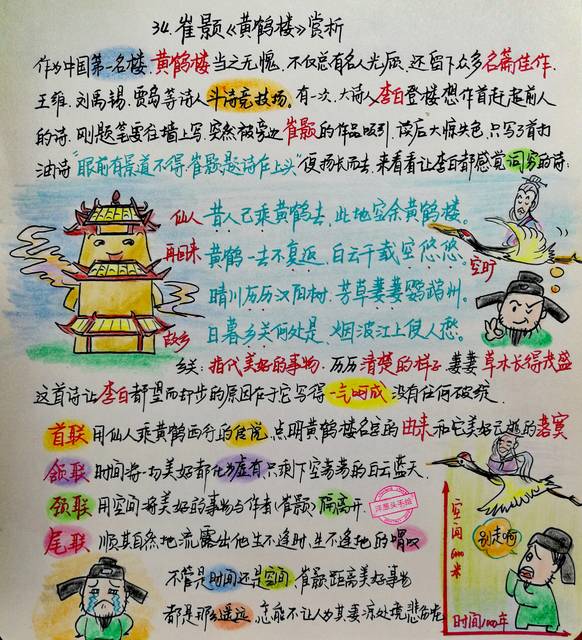 34.崔颢《黄鹤楼》赏析
作为中国第一名楼,黄鹤楼当之无愧,不仅总有名人光顾,还留下众多名篇佳作,
王维、刘禹锡、贾岛等诗人斗诗竞技场。有一次,大诗人李白登楼想作首赶超前人
的诗,刚题笔要往墙上写,突然被旁边崔颢的作品吸引,读后大惊失色,只写了首打
油诗"眼前有景道不得,崔颢题诗在上头"便扬长而去,来看看让李白都感觉词穷的诗:
仙人 昔人已乘黄鹤去,此地空余黄鹤楼。
再回来 黄鹤一去不复返,白云千载空悠悠。
空旷
晴川历历汉阳树,芳草萋萋鹦鹉洲。
故乡 日暮乡关何处是,烟波江上使人愁。
乡关:指代美好的事物,历历清楚的样子,萋萋草木长得茂盛
这首诗让李白都望而却步的原因在于它写得一气呵成,没有任何破绽
首联 用仙人乘黄鹤西行的传说,点明黄鹤楼名字的由来和它美好云逝的落寞
颔联 时间将一切美好都化为虚有,只剩下空荡荡的白云蓝天.
颈联 用空间将美好的事物与作者(崔颢)隔离开.
洋葱头手绘
尾联 顺其自然地流露出他生不逢时、生不逢地的喟叹
不管是时间还是空间,崔颢距离美好事物
都是那么遥远,怎能不让人为其凄凉处境悲伤呢
空间6000米
别走啊
时间1000年